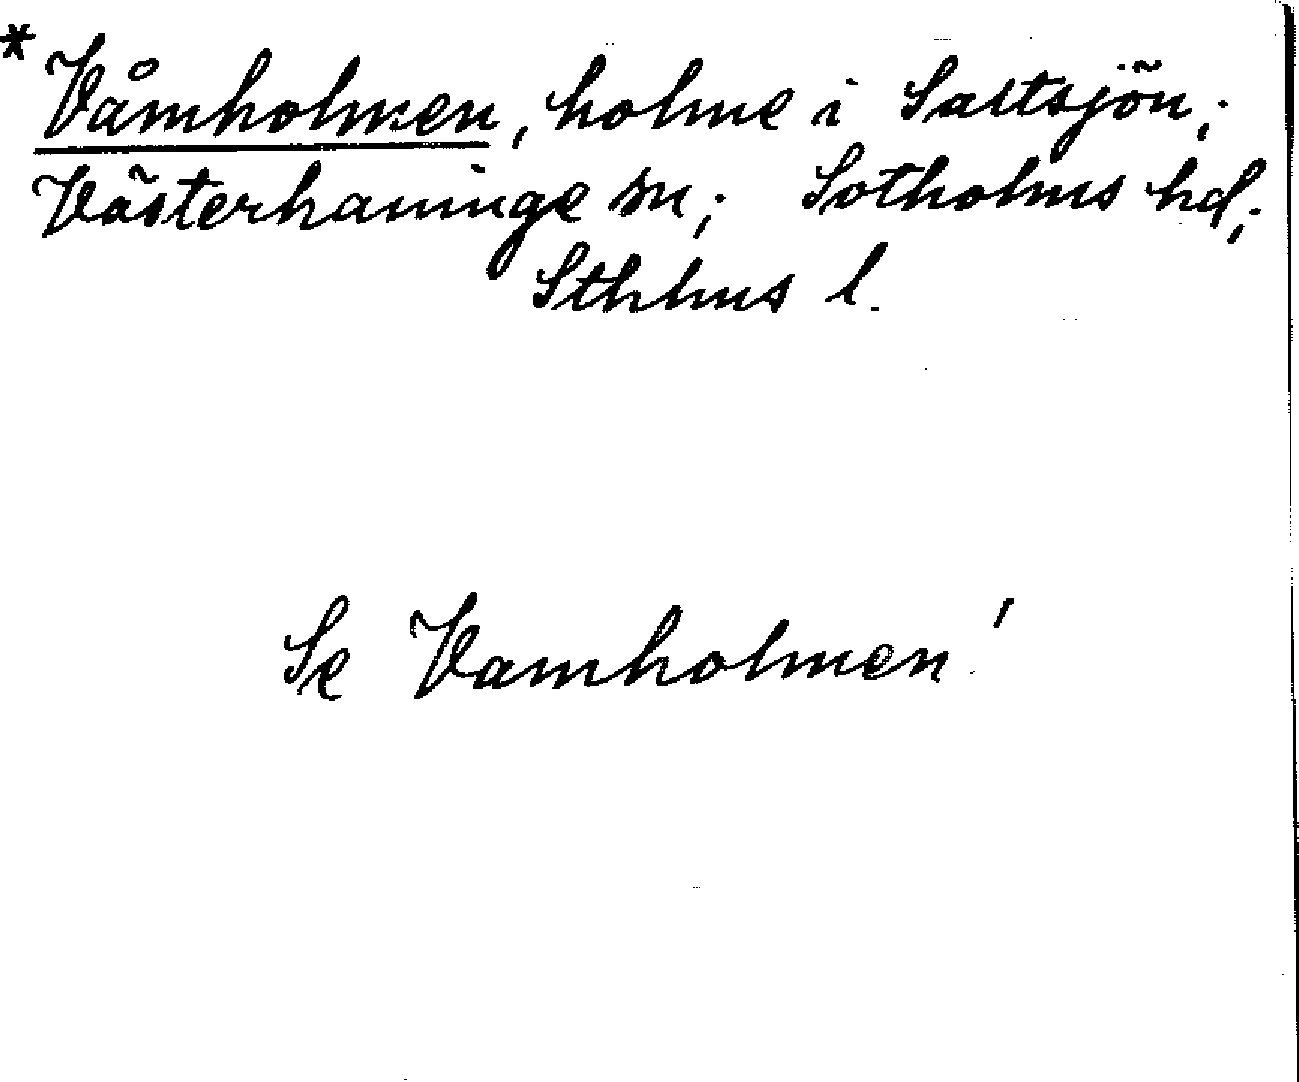 * Våmholmen, holme i Saltsjön;
Västerhaninge sn; Sotholms hd;
Sthlms l.
Se Vamholmen!